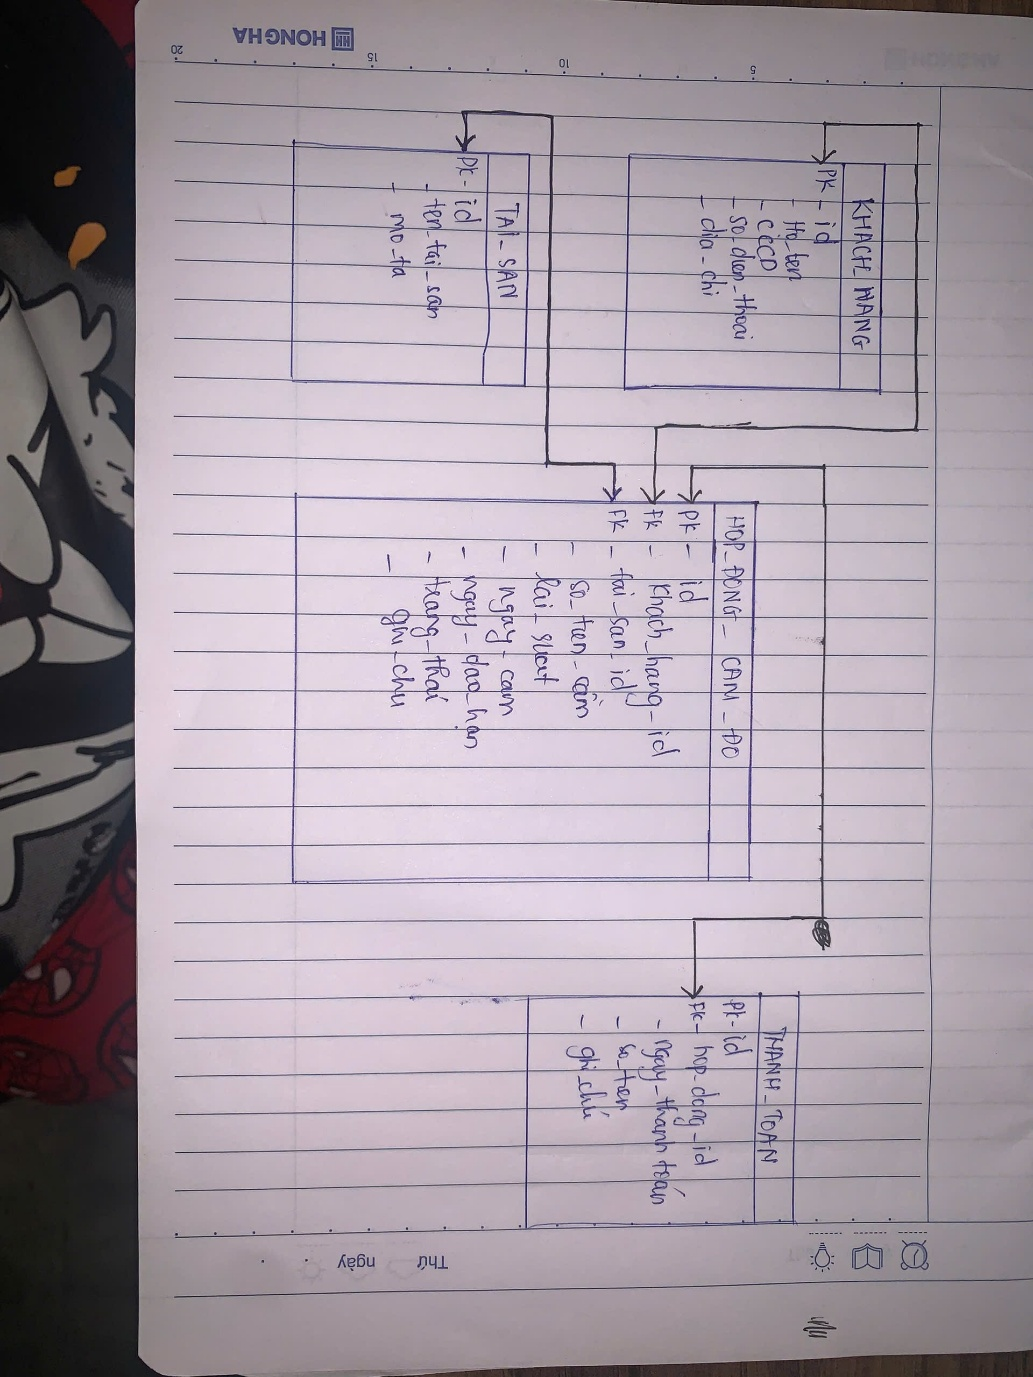 HONG HA
20
15
10
5
KHACH_HANG
PK - id
- Ho_ten
- CCCD
- so_dien_thoai
- dia_chi
TAI_SAN
PK - id
- ten_tai_san
- mo_ta
HOP_DONG_CAM_DO
PK - id
FK - khach_hang_id
FK - tai_san_id
- so_tien_cầm
- lai_suat
- ngay_cam
- ngay_dao_hạn
- trang_thai
- ghi_chu
THANH_TOAN
PK - id
FK - hop_dong_id
- ngay_thanh toán
- so_tien
- ghi_chú
Thứ ngày